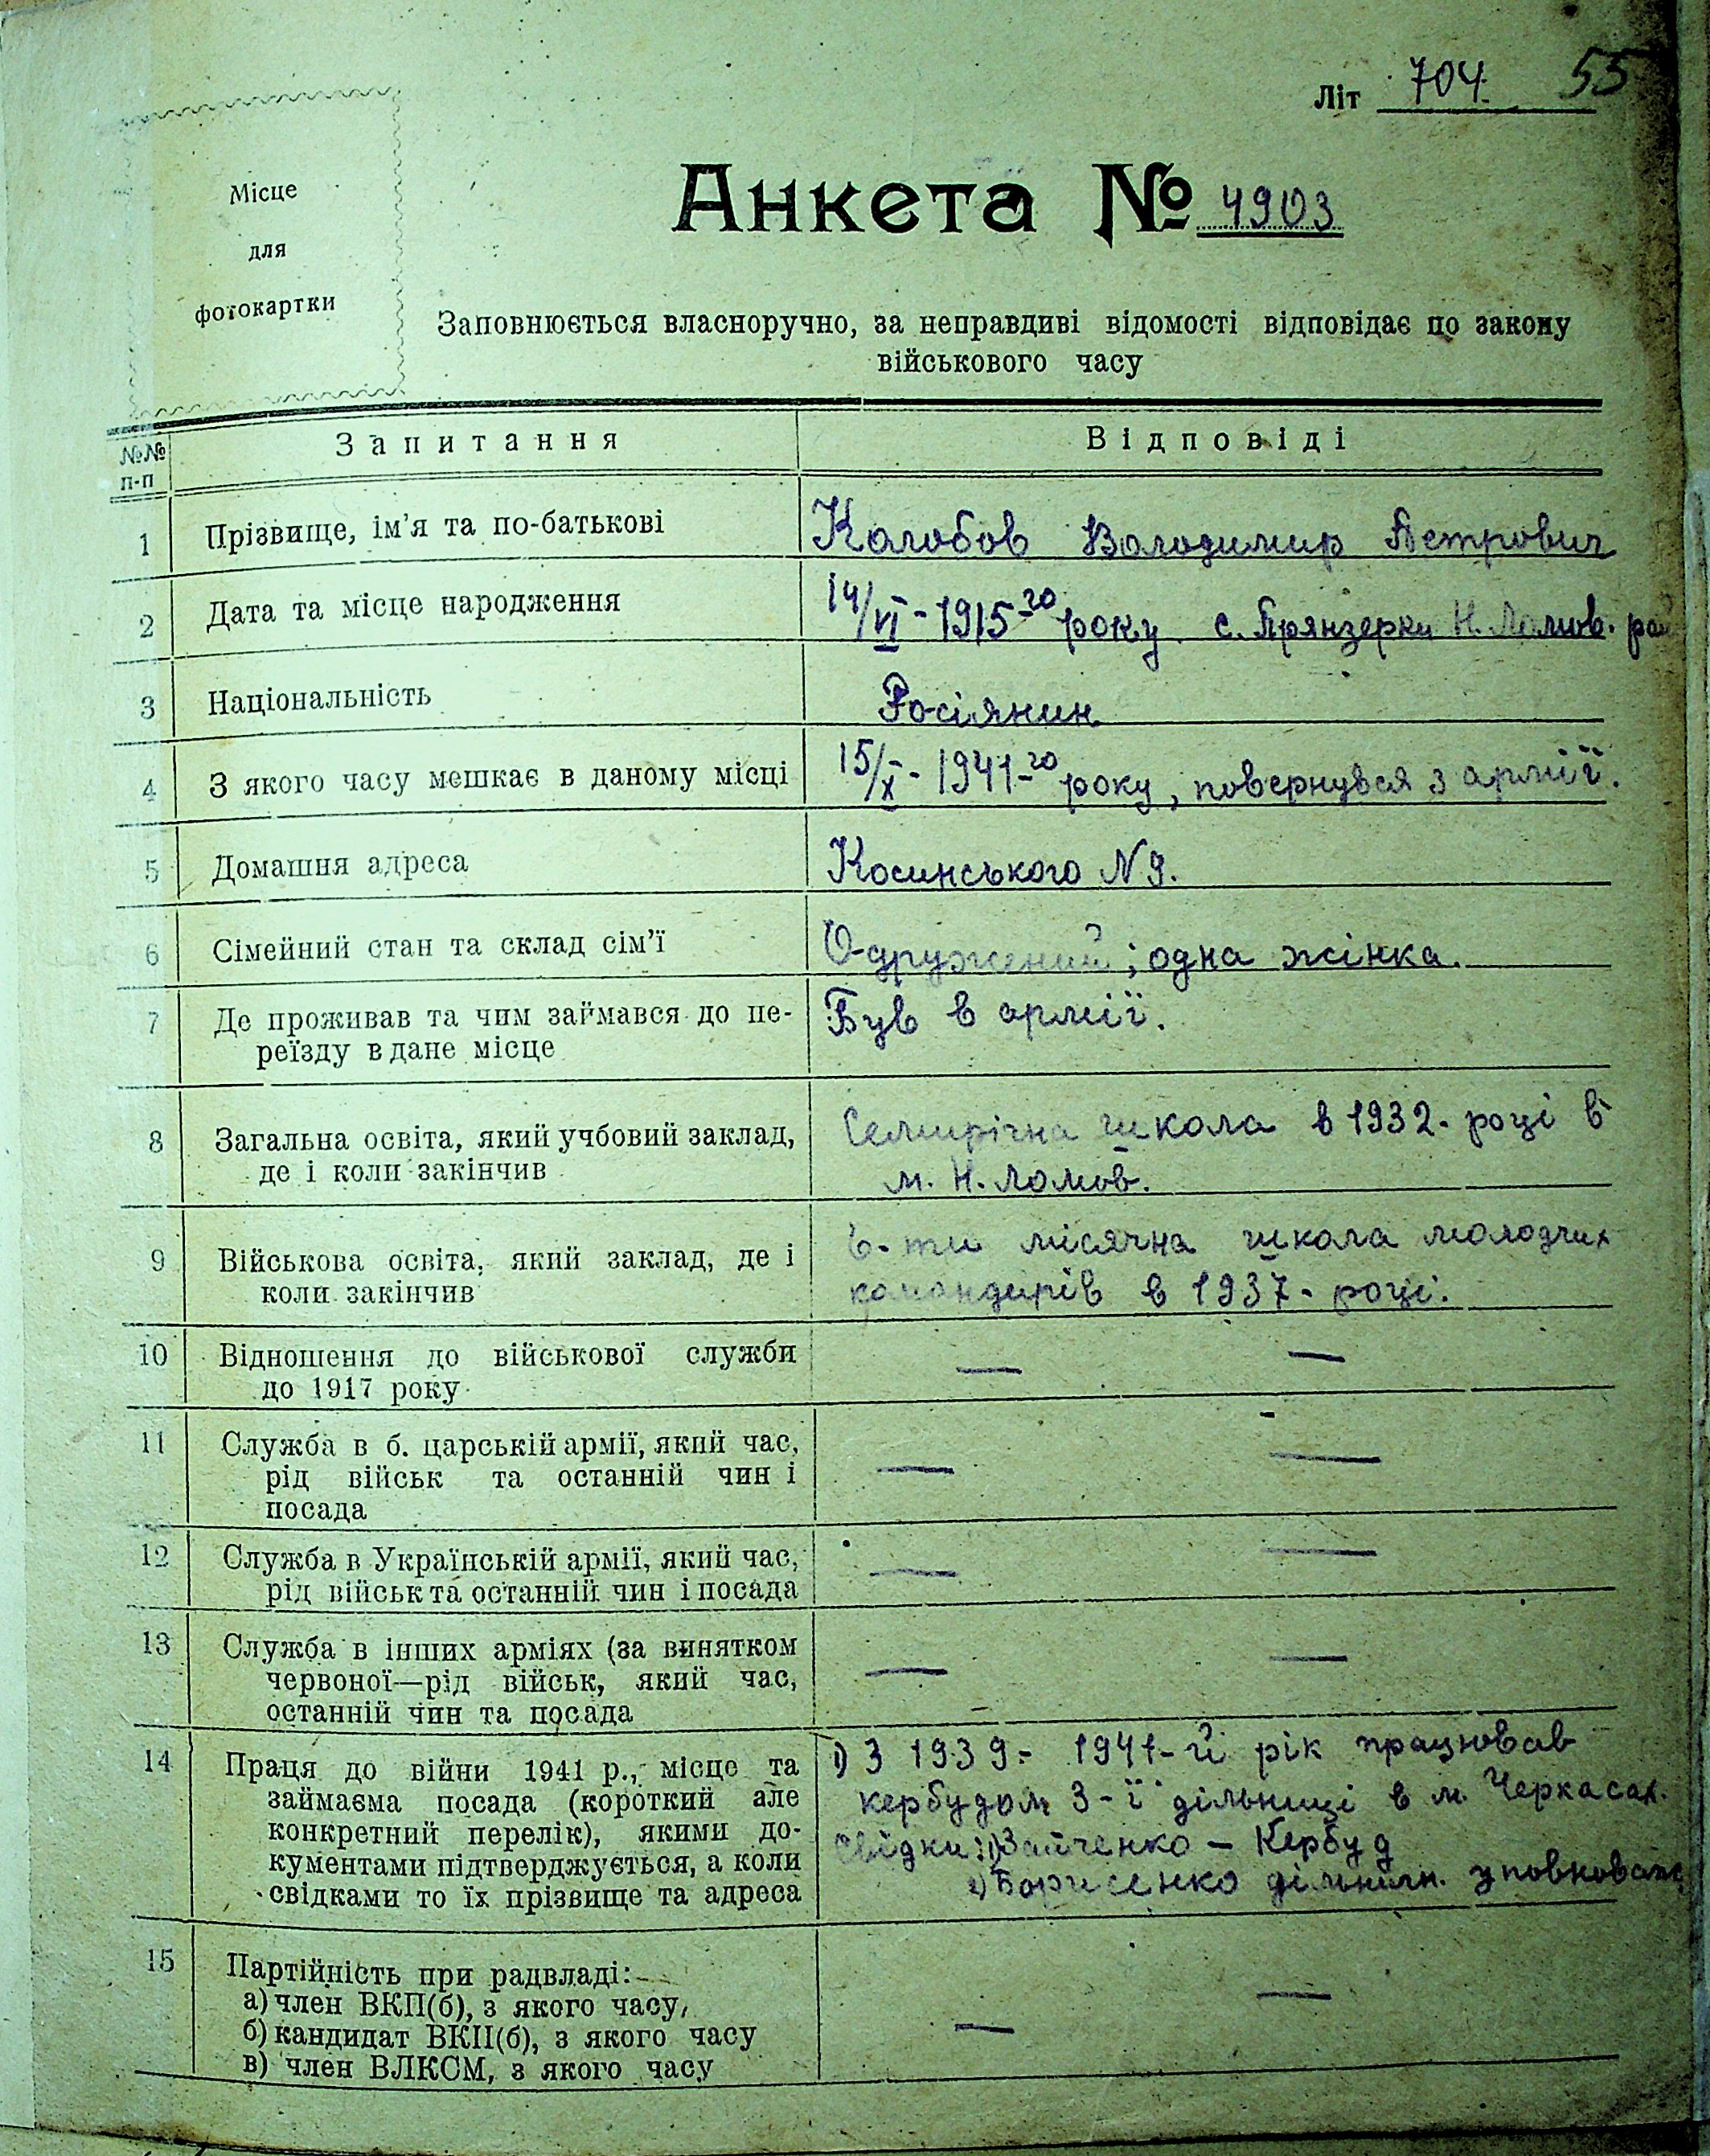 Літ 704 55
Місце
для
фотокартки
Анкета № 4903
Заповнюється власноручно, за неправдиві відомості відповідає по закону
військового часу
№№ п-п Запитання Відповіді
1 Прізвище, ім'я та по-батькові Колобов Володимир Петрович
2 Дата та місце народження 14/VI - 1915-го року с. Прянзерки Н. Ломов. рай
3 Національність Росіянин
4 З якого часу мешкає в даному місці 15/X - 1941-го року, повернувся з армії.
5 Домашня адреса Косинського N 9.
6 Сімейний стан та склад сім'ї Одружений; одна жінка.
7 Де проживав та чим займався до пе- Був в армії.
реїзду в дане місце
8 Загальна освіта, який учбовий заклад, Семирічна школа в 1932-році в
де і коли закінчив м. Н. Ломов.
9 Військова освіта, який заклад, де і 6-ти місячна школа молодших
коли закінчив командирів в 1937-році.
10 Відношення до військової служби — —
до 1917 року
11 Служба в б. царській армії, який час, — —
рід військ та останній чин і
посада
12 Служба в Українській армії, який час, — —
рід військ та останній чин і посада
13 Служба в інших арміях (за винятком — —
червоної—рід військ, який час,
останній чин та посада
14 Праця до війни 1941 р., місце та 1) З 1939 - 1941-й рік працював
займаєма посада (короткий але кербудом 3-ї дільниці в м. Черкасах.
конкретний перелік), якими до- Свідки: 1) Зайченко — Кербуд
кументами підтверджується, а коли 2) Борисенко дільничн. уповноваж
свідками то їх прізвище та адреса
15 Партійність при радвладі: — —
а) член ВКП(б), з якого часу,
б) кандидат ВКП(б), з якого часу
в) член ВЛКСМ, з якого часу